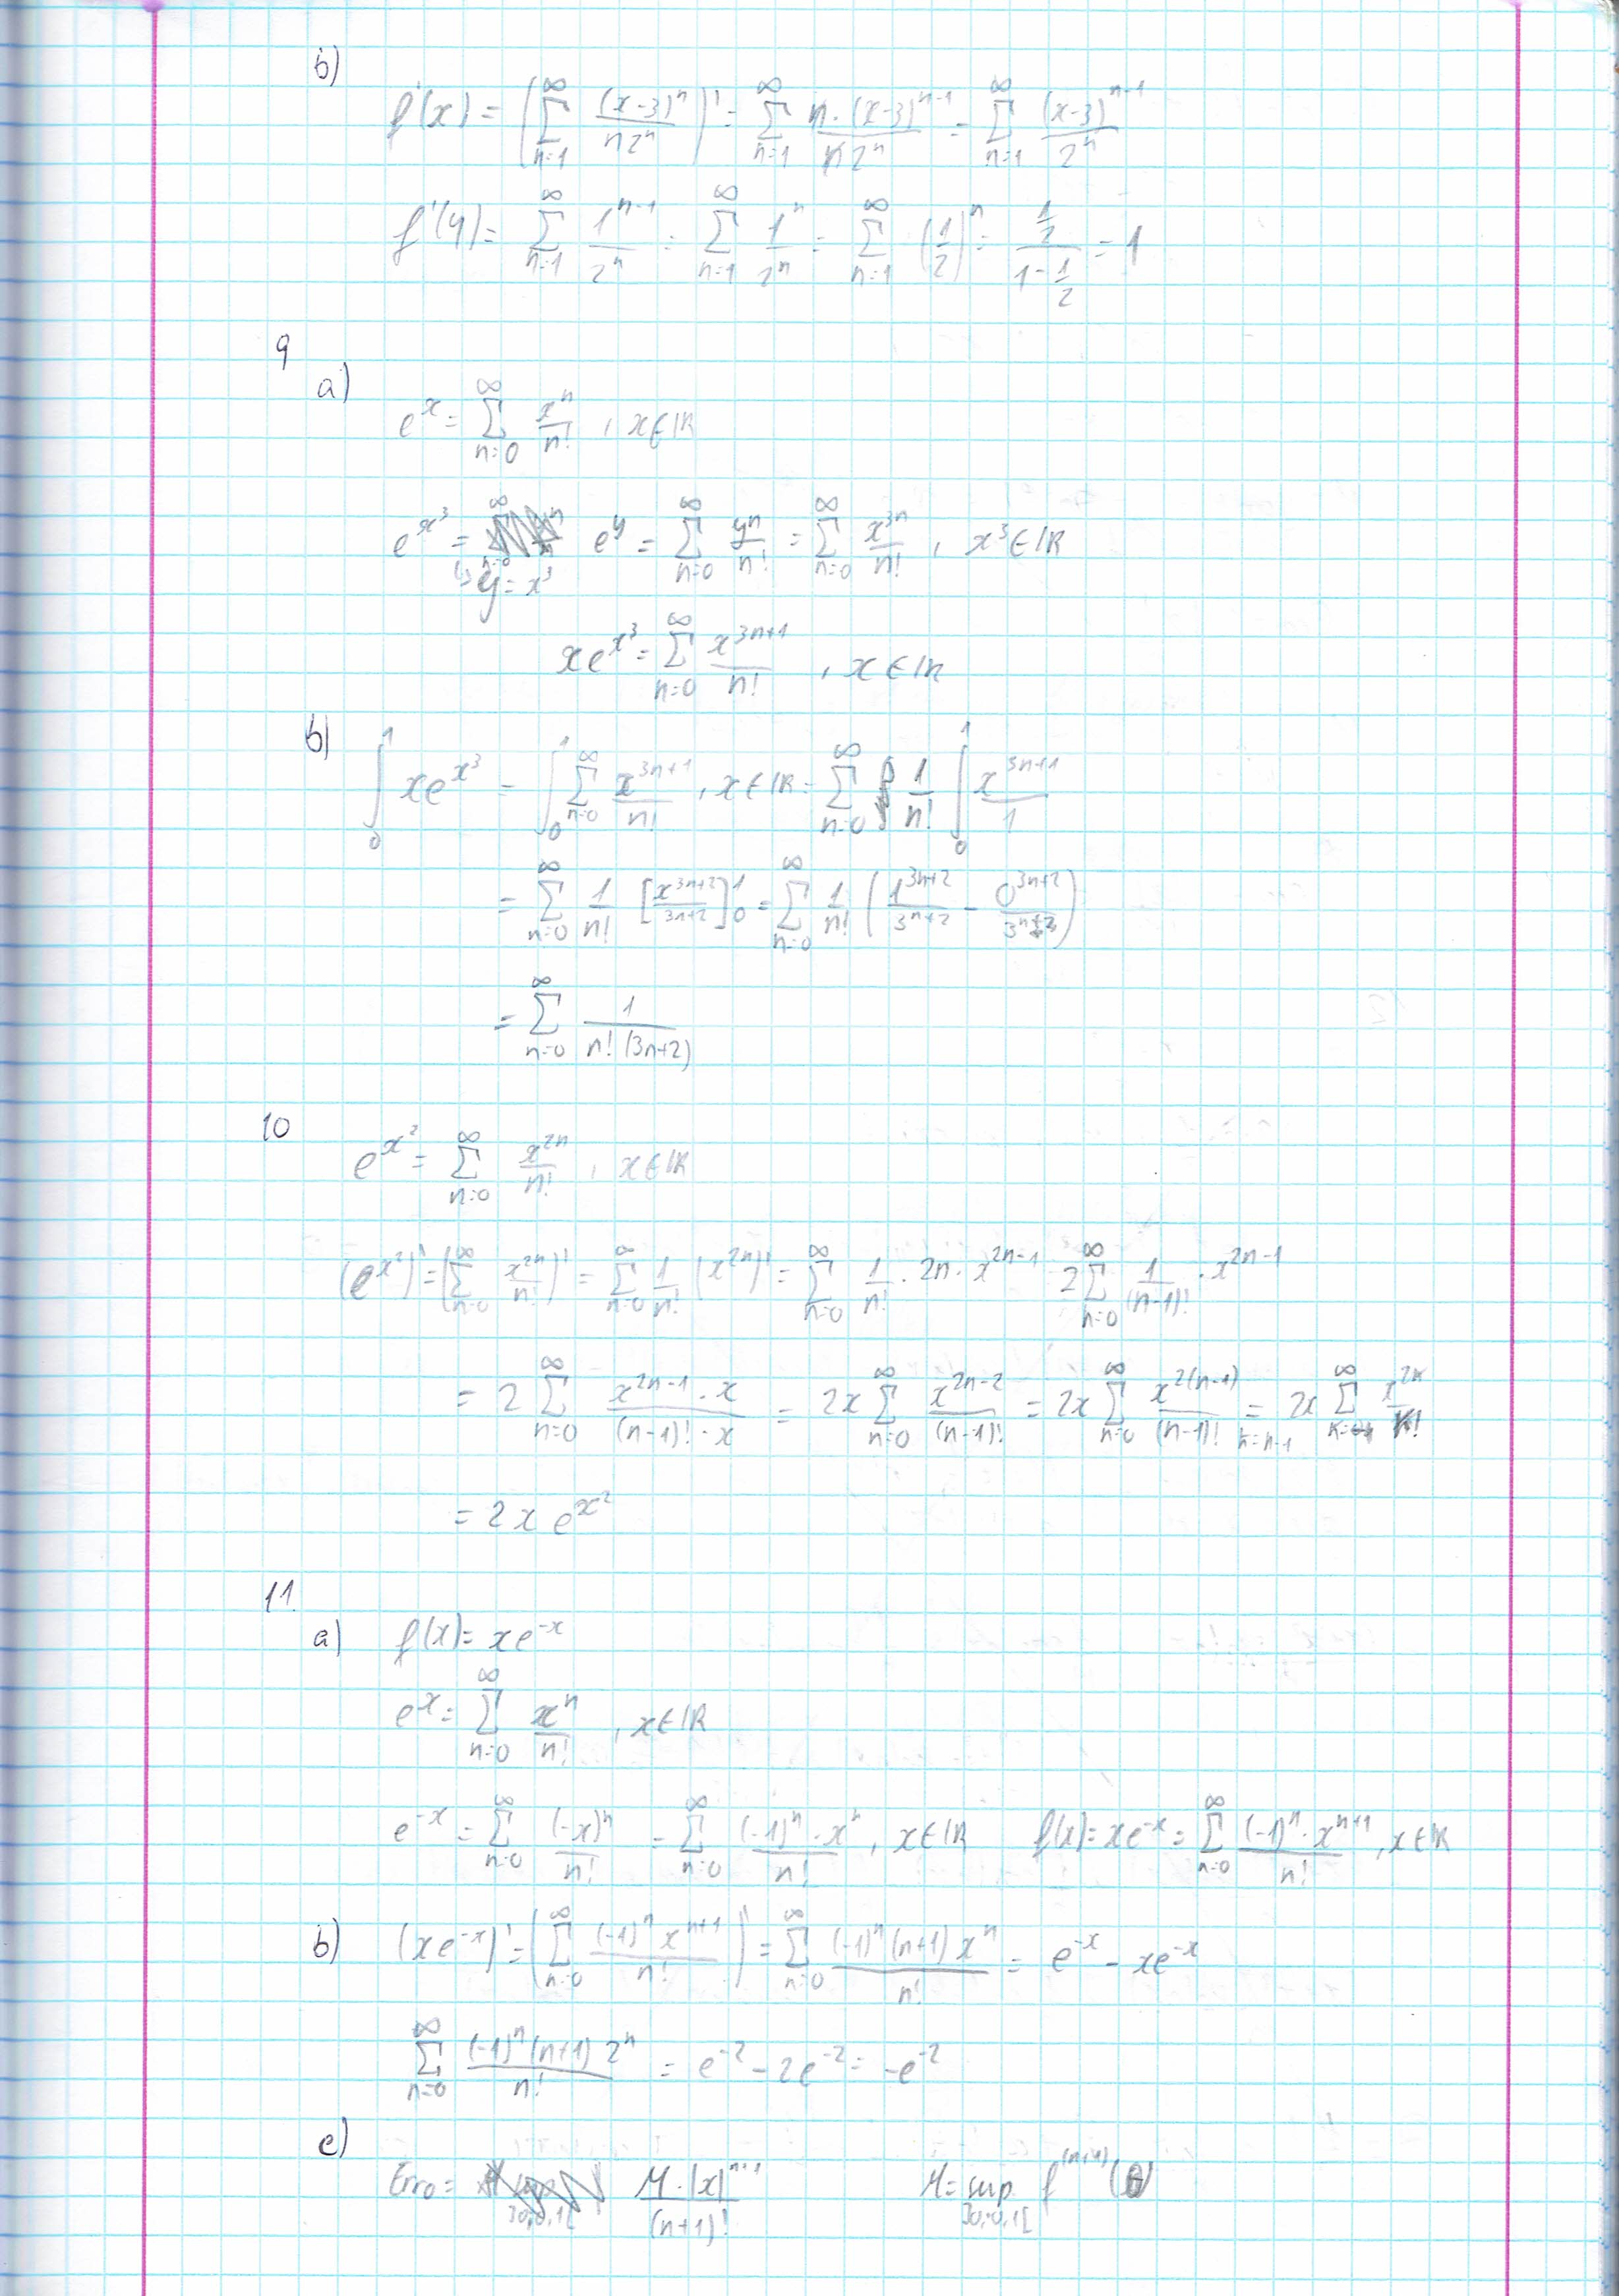 b)
f'(x) = (∑_{n=1}^{∞} (x-3)^n / n2^n)' = ∑_{n=1}^{∞} n·(x-3)^{n-1} / n2^n = ∑_{n=1}^{∞} (x-3)^{n-1} / 2^n
f'(4) = ∑_{n=1}^{∞} 1^{n-1} / 2^n = ∑_{n=1}^{∞} 1^n / 2^n = ∑_{n=1}^{∞} (1/2)^n = (1/2) / (1 - 1/2) = 1
9
a)
e^x = ∑_{n=0}^{∞} x^n / n! , x∈IR
e^{x^3} = e^y = ∑_{n=0}^{∞} y^n / n! = ∑_{n=0}^{∞} x^{3n} / n! , x^3∈IR
↳ y = x^3
xe^{x^3} = ∑_{n=0}^{∞} x^{3n+1} / n! , x∈IR
b)
∫_0^1 xe^{x^3} = ∫_0^1 ∑_{n=0}^{∞} x^{3n+1} / n! , x∈IR = ∑_{n=0}^{∞} 1/n! ∫_0^1 x^{3n+1} / 1
= ∑_{n=0}^{∞} 1/n! [x^{3n+2} / 3n+2]_0^1 = ∑_{n=0}^{∞} 1/n! (1^{3n+2} / 3n+2 - 0^{3n+2} / 3n+2)
= ∑_{n=0}^{∞} 1 / n!(3n+2)
10
e^{x^2} = ∑_{n=0}^{∞} x^{2n} / n! , x∈IR
(e^{x^2})' = (∑_{n=0}^{∞} x^{2n} / n!)' = ∑_{n=0}^{∞} 1/n! (x^{2n})' = ∑_{n=0}^{∞} 1/n! · 2n · x^{2n-1} 2∑_{n=0}^{∞} 1/(n-1)! · x^{2n-1}
= 2∑_{n=0}^{∞} x^{2n-1}·x / (n-1)!·x = 2x∑_{n=0}^{∞} x^{2n-2} / (n-1)! = 2x∑_{n=0}^{∞} x^{2(n-1)} / (n-1)! =_{k=n-1} 2x∑_{k=0}^{∞} x^{2k} / k!
= 2xe^{x^2}
11.
a) f(x) = xe^{-x}
e^x = ∑_{n=0}^{∞} x^n / n! , x∈IR
e^{-x} = ∑_{n=0}^{∞} (-x)^n / n! = ∑_{n=0}^{∞} (-1)^n·x^n / n! , x∈IR f(x) = xe^{-x} = ∑_{n=0}^{∞} (-1)^n·x^{n+1} / n! , x∈IR
b) (xe^{-x})' = (∑_{n=0}^{∞} (-1)^n x^{n+1} / n!)' = ∑_{n=0}^{∞} (-1)^n (n+1) x^n / n! = e^{-x} - xe^{-x}
∑_{n=0}^{∞} (-1)^n (n+1) 2^n / n! = e^{-2} - 2e^{-2} = -e^{-2}
c)
Erro = M·|x|^{n+1} / (n+1)! M = sup_{]0;0,1[} f^{(n+1)}(θ)